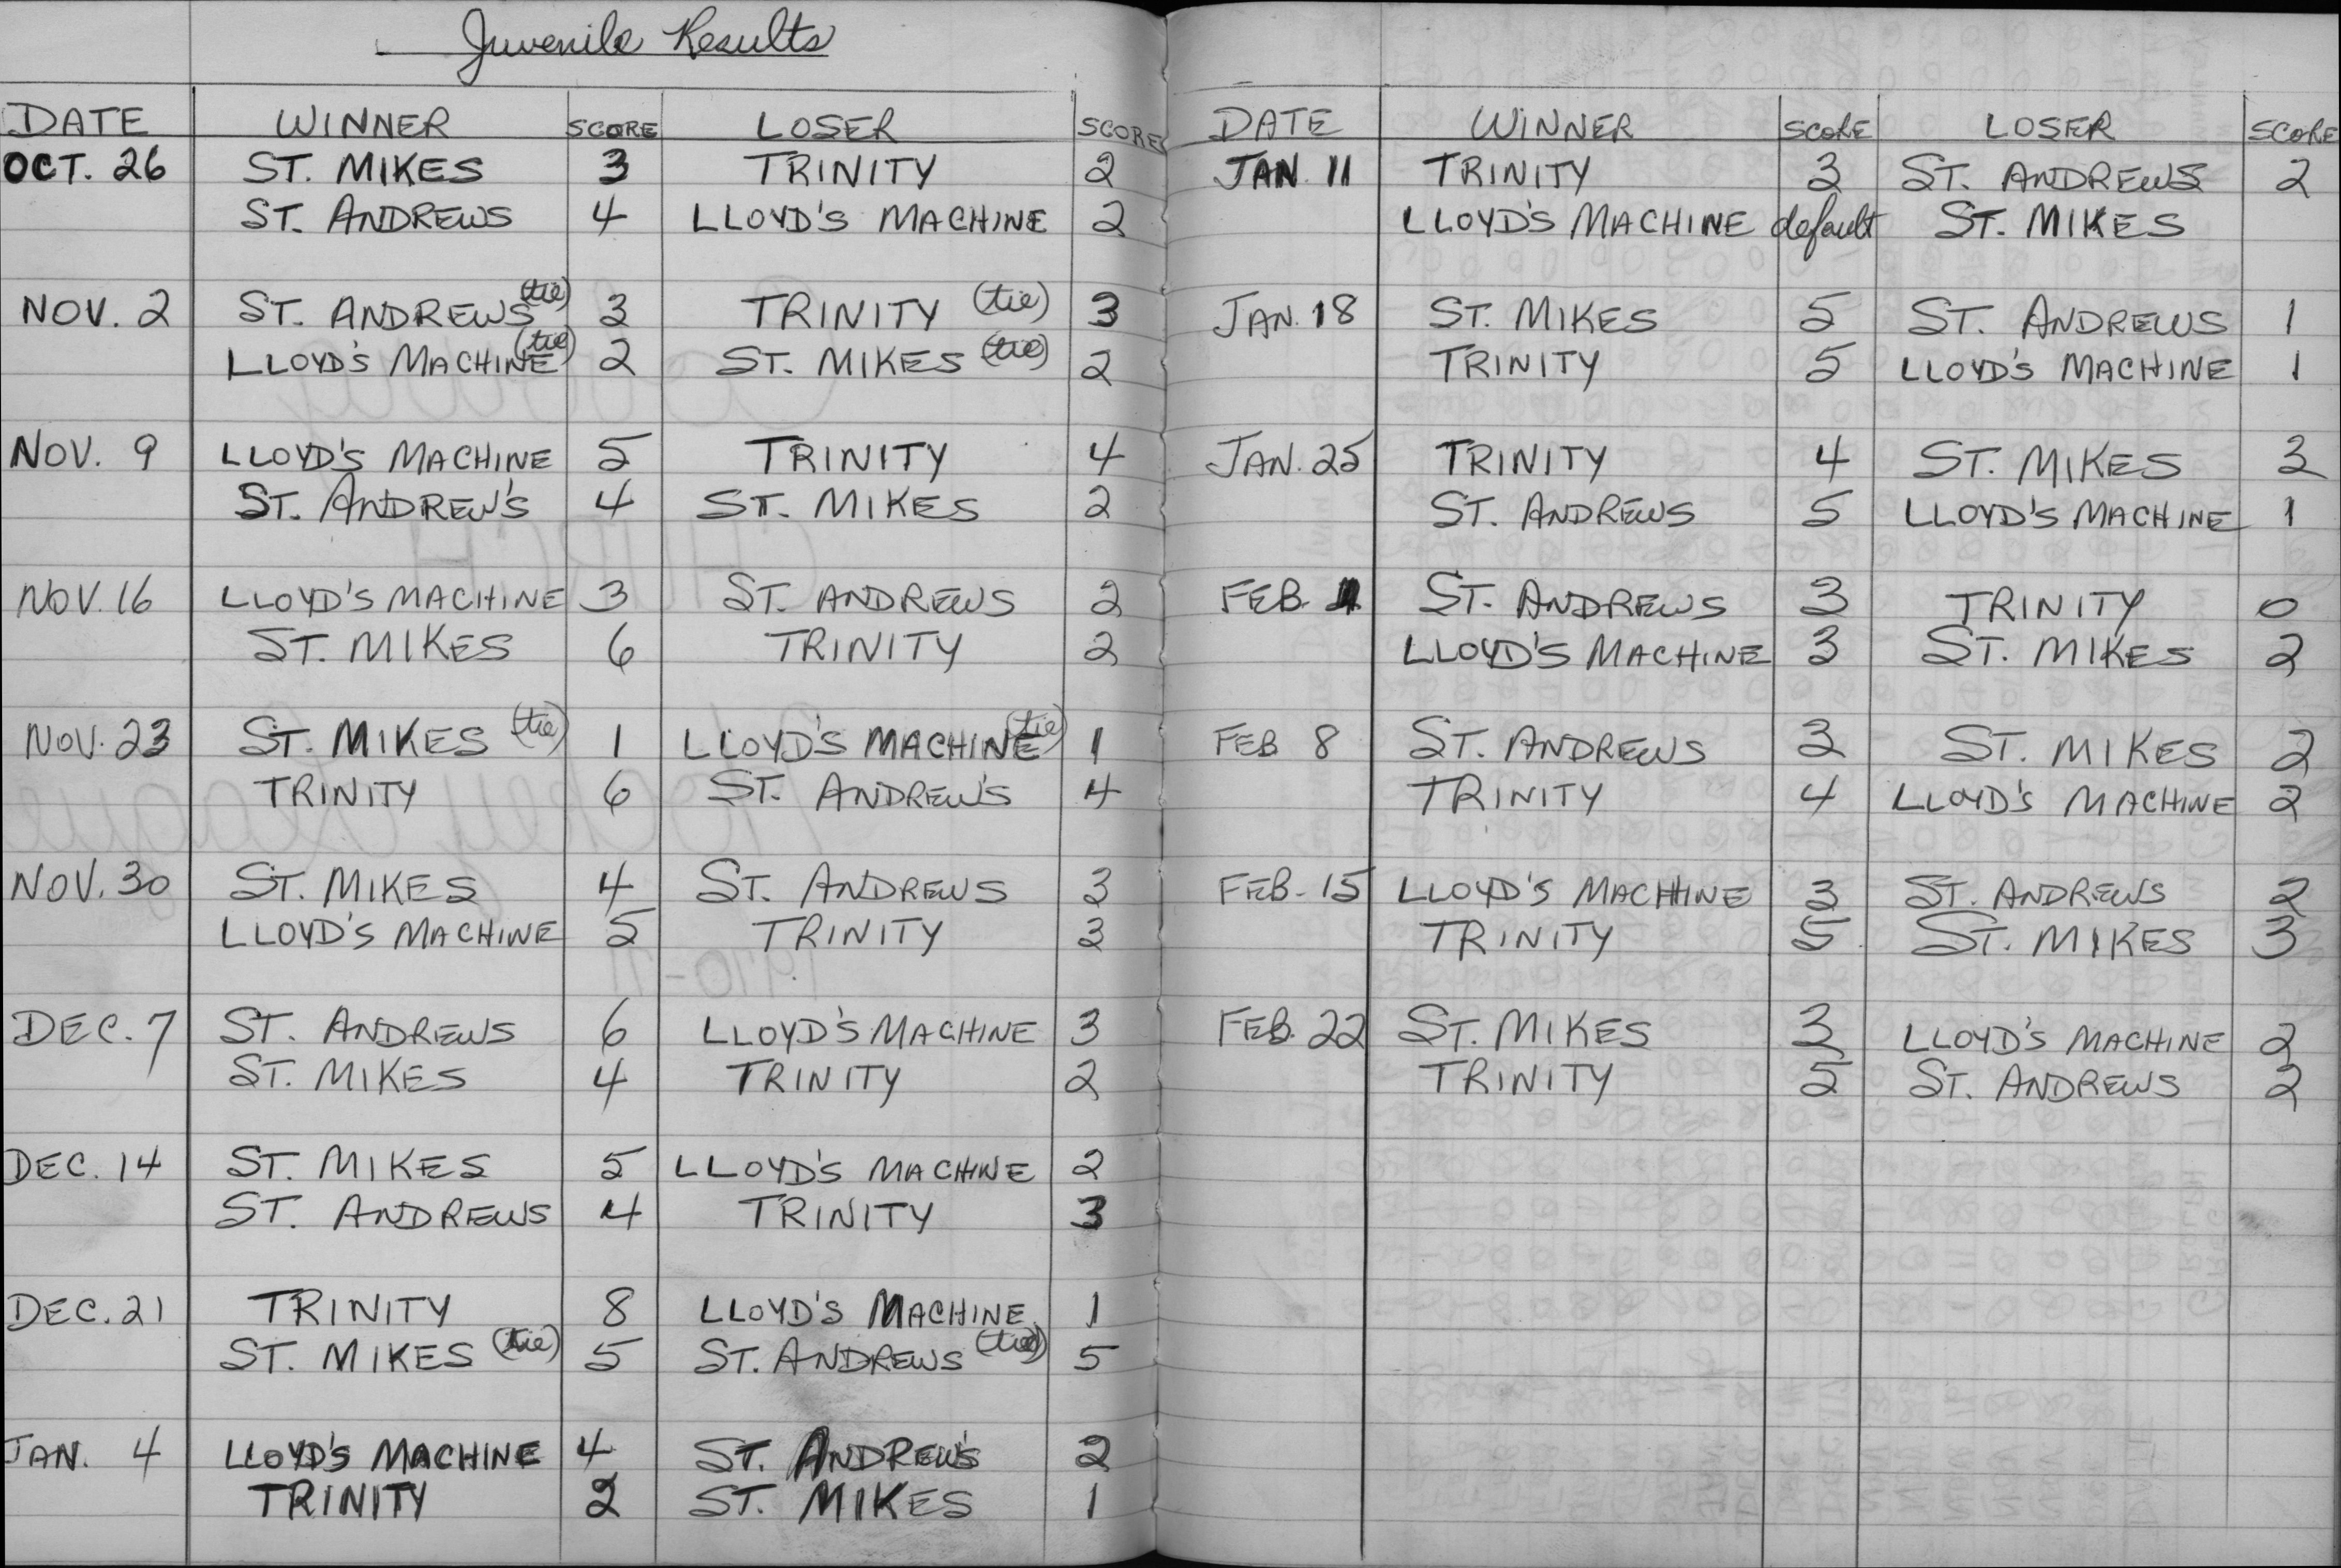 Juvenile Results
DATE WINNER SCORE LOSER SCORE
OCT. 26 ST. MIKES 3 TRINITY 2
ST. ANDREWS 4 LLOYD'S MACHINE 2
NOV. 2 ST. ANDREWS (tie) 3 TRINITY (tie) 3
LLOYD'S MACHINE (tie) 2 ST. MIKES (tie) 2
NOV. 9 LLOYD'S MACHINE 5 TRINITY 4
ST. ANDREW'S 4 ST. MIKES 2
NOV. 16 LLOYD'S MACHINE 3 ST. ANDREWS 2
ST. MIKES 6 TRINITY 2
NOV. 23 ST. MIKES (tie) 1 LLOYD'S MACHINE (tie) 1
TRINITY 6 ST. ANDREW'S 4
NOV. 30 ST. MIKES 4 ST. ANDREWS 3
LLOYD'S MACHINE 5 TRINITY 3
DEC. 7 ST. ANDREWS 6 LLOYD'S MACHINE 3
ST. MIKES 4 TRINITY 2
DEC. 14 ST. MIKES 5 LLOYD'S MACHINE 2
ST. ANDREWS 4 TRINITY 3
DEC. 21 TRINITY 8 LLOYD'S MACHINE 1
ST. MIKES (tie) 5 ST. ANDREWS (tie) 5
JAN. 4 LLOYD'S MACHINE 4 ST. ANDREW'S 2
TRINITY 2 ST. MIKES 1
DATE WINNER SCORE LOSER SCORE
JAN 11 TRINITY 3 ST. ANDREWS 2
LLOYD'S MACHINE default ST. MIKES
JAN. 18 ST. MIKES 5 ST. ANDREWS 1
TRINITY 5 LLOYD'S MACHINE 1
JAN. 25 TRINITY 4 ST. MIKES 3
ST. ANDREWS 5 LLOYD'S MACHINE 1
FEB. 1 ST. ANDREWS 3 TRINITY 0
LLOYD'S MACHINE 3 ST. MIKES 2
FEB 8 ST. ANDREWS 3 ST. MIKES 2
TRINITY 4 LLOYD'S MACHINE 2
FEB. 15 LLOYD'S MACHINE 3 ST. ANDREWS 2
TRINITY 5 ST. MIKES 3
FEB. 22 ST. MIKES 3 LLOYD'S MACHINE 2
TRINITY 5 ST. ANDREWS 2